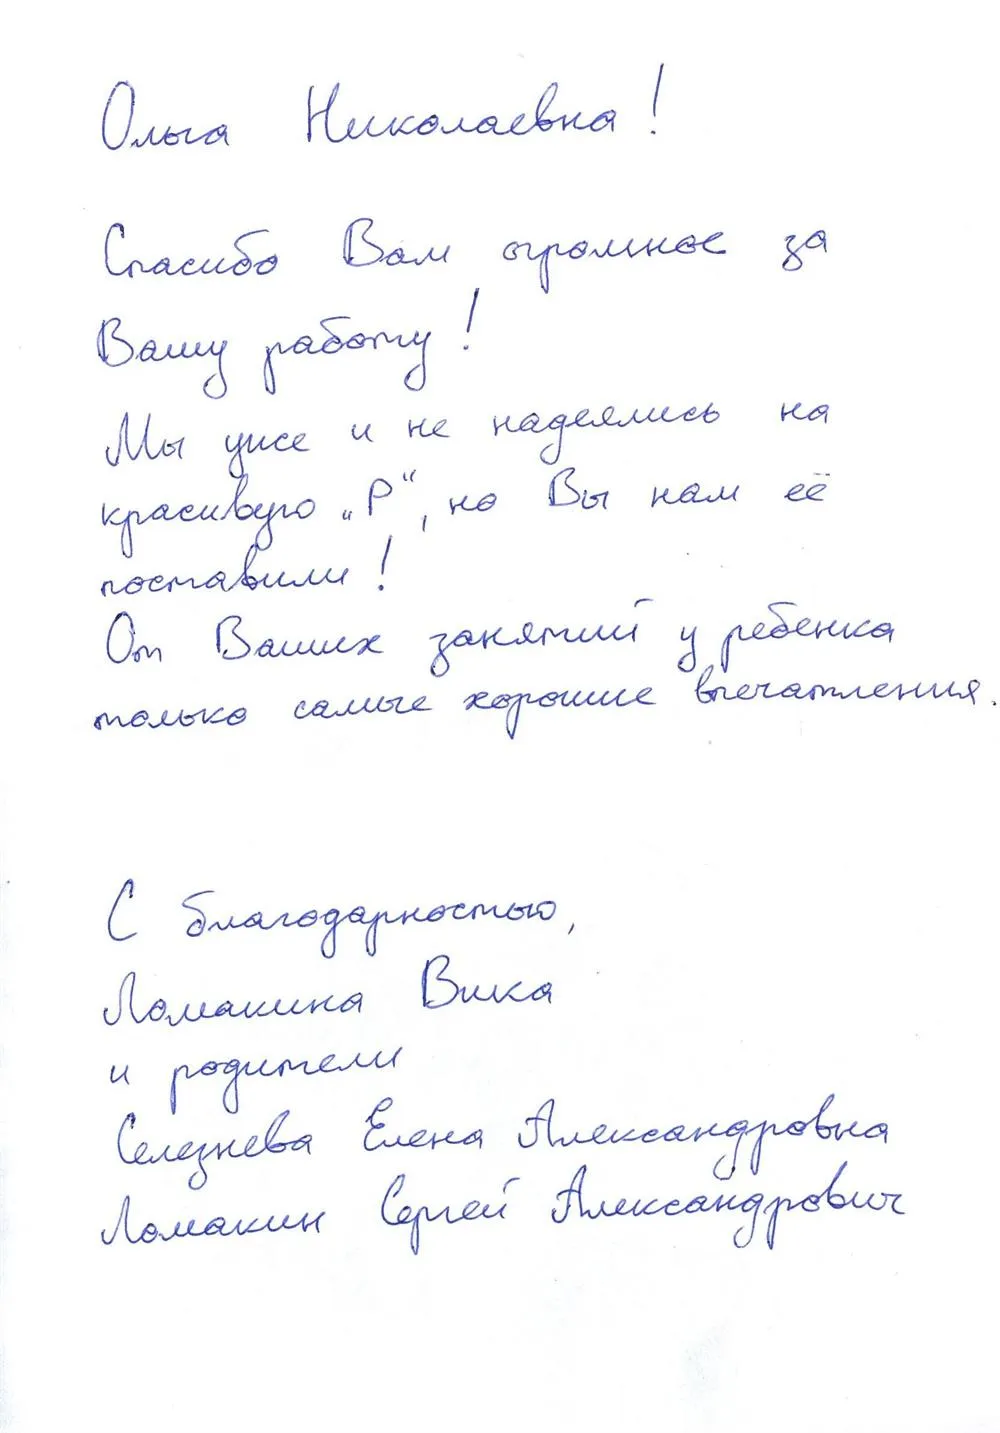 Ольга Николаевна!
Спасибо Вам огромное за
Вашу работу!
Мы уже и не надеялись на
красивую „Р“, но Вы нам её
поставили!
От Ваших занятий у ребенка
только самые хорошие впечатления.
С благодарностью,
Ломакина Вика
и родители
Селезнева Елена Александровна
Ломакин Сергей Александрович